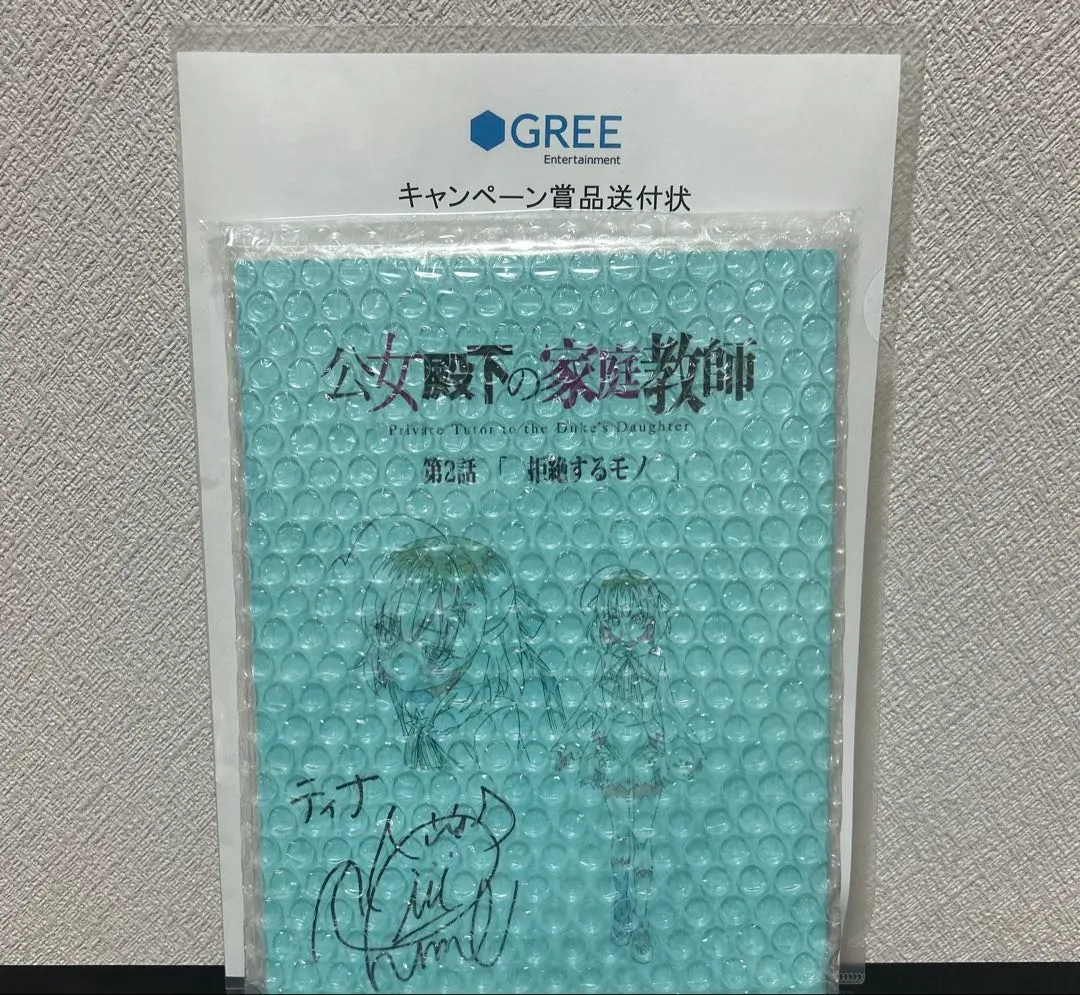 GREE
Entertainment
キャンペーン賞品送付状
公女殿下の家庭教師
Private Tutor to the Duke's Daughter
第2話 「 拒絶するモノ 」
ティナ